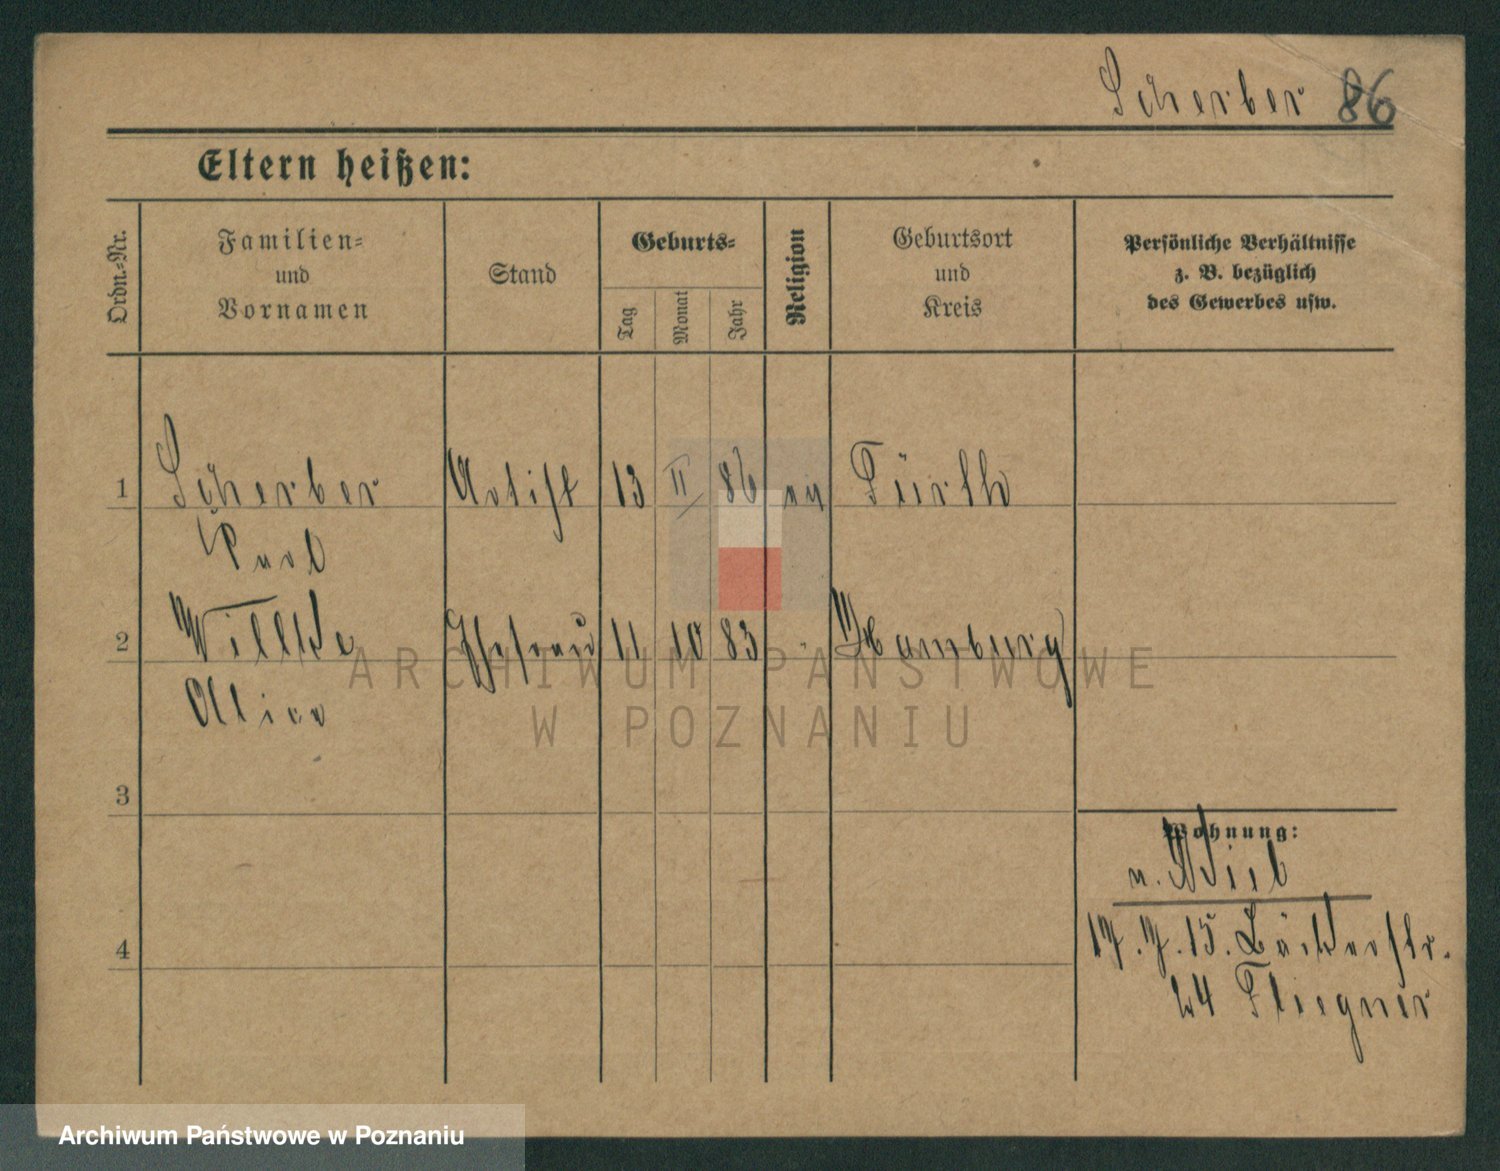 Scherber 86
Eltern heißen:
Ordn.-Nr.
Familien-
und
Vornamen
Stand
Geburts-
Tag
Monat
Jahr
Religion
Geburtsort
und
Kreis
Persönliche Verhältnisse
z. B. bezüglich
des Gewerbes usw.
1 Scherber Artist 13 II 86 ev Fürth
2 Ehefrau 11 10 83 " Hamburg
Alice
3
4
Wohnung:
17.7.15. Bäckerstr.
24 Fliegner
ARCHIWUM PAŃSTWOWE
W POZNANIU
Archiwum Państwowe w Poznaniu